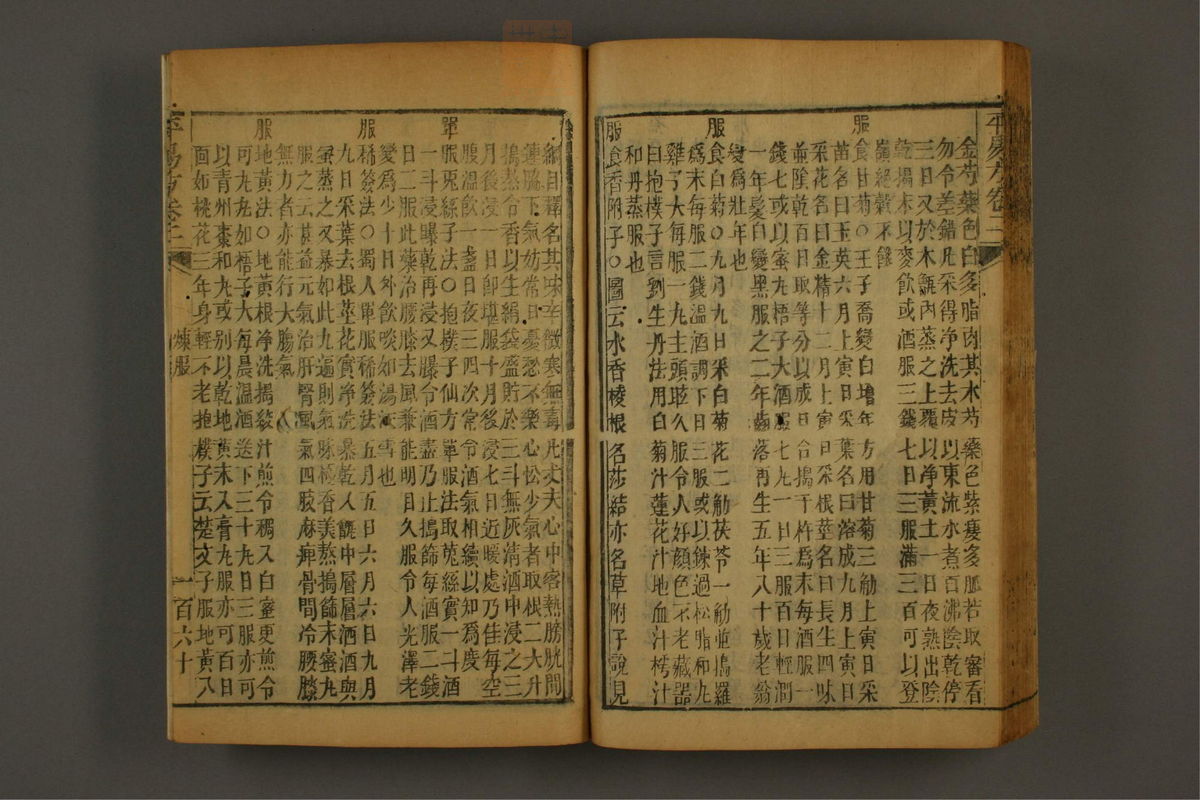 金芍藥色白多脂肉其木芍藥色紫瘦多脈若取審看
勿令差錯凡采得淨洗去皮以東流水煮百沸陰乾停
三日又於木甑內蒸之上覆以淨黃土一日夜熟出陰
乾搗末以麥飲或酒服三錢七日三服滿三百可以登
嶺絕穀不饑
服食甘菊○王子喬變白增年方用甘菊三觔上寅日采
苗名曰玉英六月上寅日采葉名曰溶成九月上寅日
采花名曰金精十二月上寅日采根莖名曰長生四味
並陰乾百日取等分以成日合搗千杵為末每酒服一
錢七或以蜜丸梧子大酒服七丸一日三服百日輕潤
一年髮白變黑服之二年齒落再生五年八十歲老翁
變為壯年也
服食白菊○九月九日采白菊花二觔茯苓一觔並搗羅
為末每服二錢溫酒調下日三服或以鍊過松脂和丸
雞子大每服一丸主頭眩久服令人好顏色不老藏器
曰抱樸子言劉生丹法用白菊汁蓮花汁地血汁樗汁
和丹蒸服也
服食香附子○圖云水香棱根名莎結亦名草附子說見
綱目釋名其味辛微寒無毒凡丈夫心中客熱膀胱間
連脇下氣妨常日憂愁不樂心忪少氣者取根二大升
搗熬令香以生絹袋盛貯於三斗無灰清酒中浸之三
月後浸一日即堪服十月後浸七日近暖處乃佳每空
腹溫飲一盞日夜三四次常令酒氣相續以知為度
單服兎絲子法○抱樸子仙方單服法取兎絲實一斗酒
一斗浸曝乾再浸又曝令酒盡乃止搗篩每酒服二錢
日二服此藥治腰膝去風兼能明目久服令人光澤老
變為少十日外飲啖如湯沃雪也
服稀簽法○蜀人單服稀簽法五月五日六月六日九月
九日采葉去根莖花實淨洗暴乾入甑中層層酒與
蜜蒸之又暴如此九遍則氣味極香美熬搗篩末蜜丸
服之云甚益元氣治肝腎風氣四肢麻痺骨間冷腰膝
無力者亦能行大腸氣
服地黃法○地黃根淨洗搗絞汁煎令稠入白蜜更煎令
可丸丸如梧子大每晨溫酒送下三十丸日三服亦可
以青州棗和丸或別以乾地黃末入膏丸服亦可百日
面如桃花三年身輕不老抱樸子云楚文子服地黃八
平易方卷二
煉服
一百六十